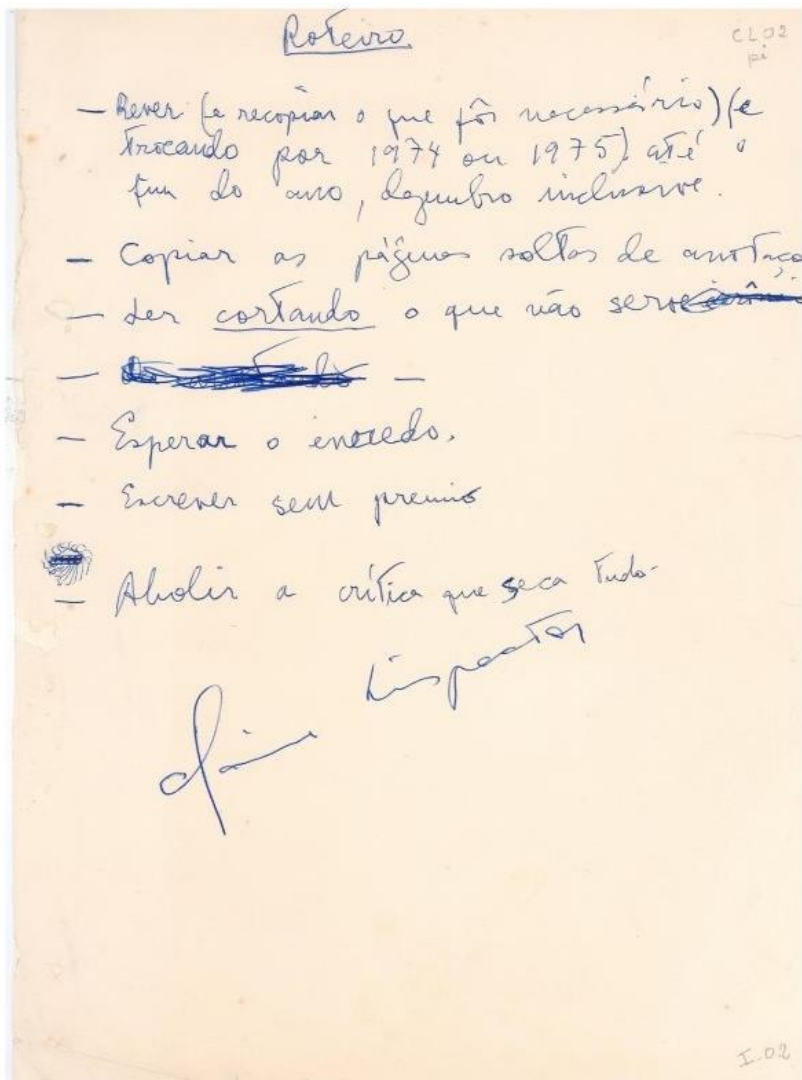 Roteiro.
CL 02
pi
— Rever (e recopiar o que fôr necessário) (e
trocando por 1974 ou 1975) até o
fim do ano, dezembro inclusive.
— Copiar as páginas soltas de anotaço
— Ler cortando o que não serve
—
— Esperar o enredo.
— Escrever sem premio
— Abolir a crítica que seca tudo.
Clarice Lispector
I-02